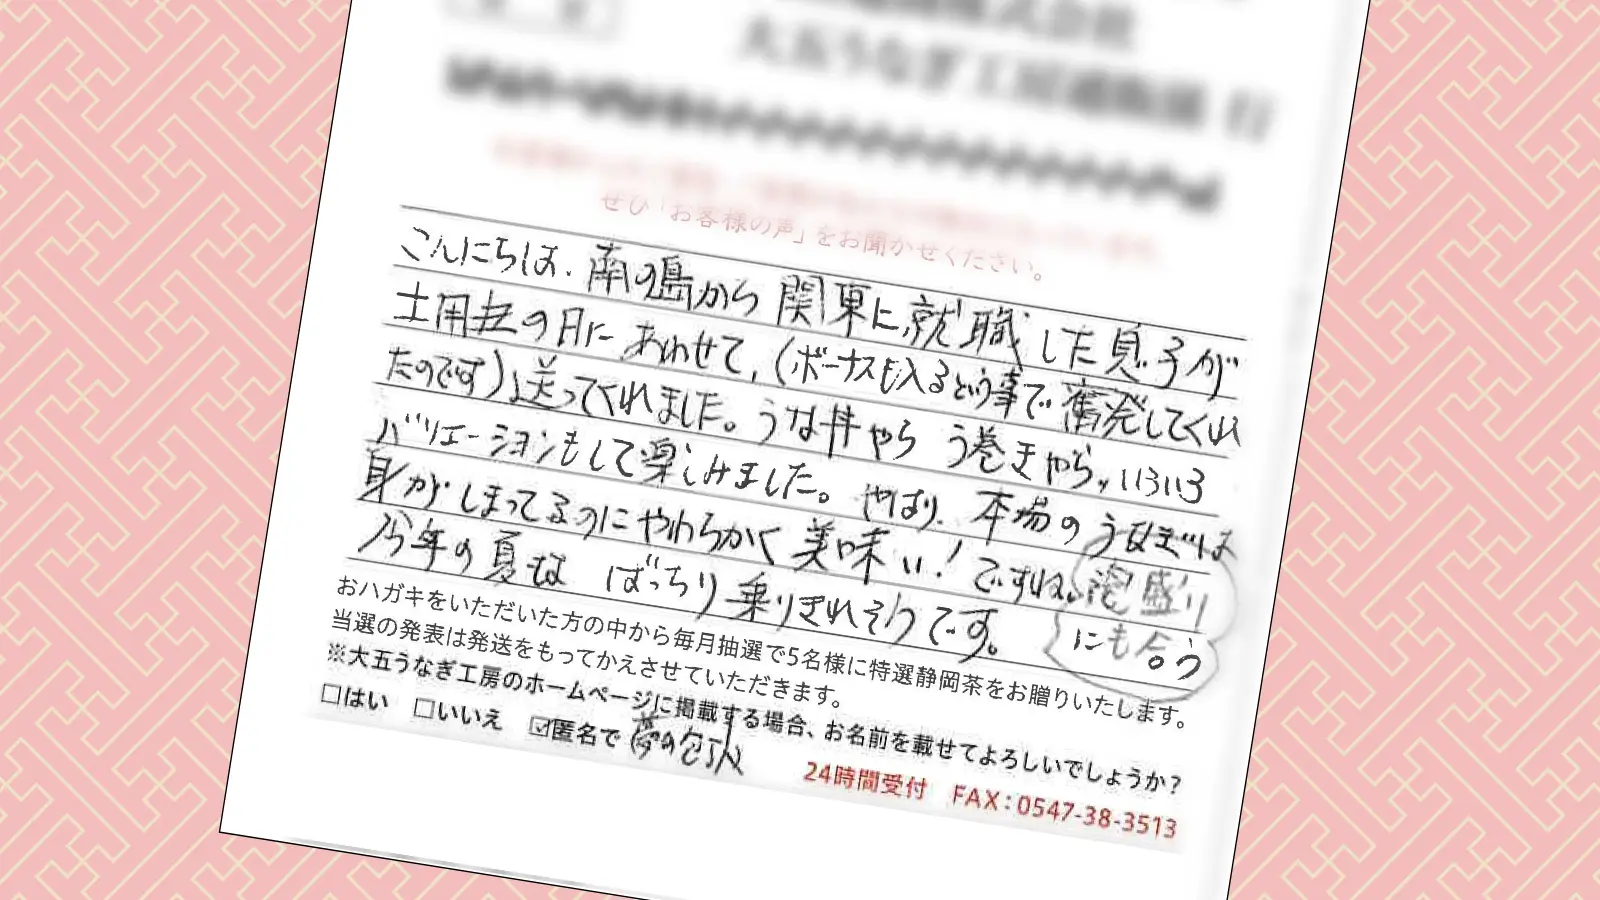 大五うなぎ工房通販係 行
ぜひ「お客様の声」をお聞かせください。
こんにちは、南の島から関東に就職した息子が
土用丑の日にあわせて、(ボーナスも入るという事で奮発してくれ
たのです)送ってくれました。うな丼やら う巻きやら、いろいろ
バリエーションもして楽しみました。やはり、本場のうなぎは
身がしまってるのにやわらかく美味い!ですね。
泡盛り
にも合う
今年の夏は ばっちり乗りきれそうです。
おハガキをいただいた方の中から毎月抽選で5名様に特選静岡茶をお贈りいたします。
当選の発表は発送をもってかえさせていただきます。
※大五うなぎ工房のホームページに掲載する場合、お名前を載せてよろしいでしょうか?
□はい □いいえ ☑匿名で 夢の
24時間受付 FAX:0547-38-3513